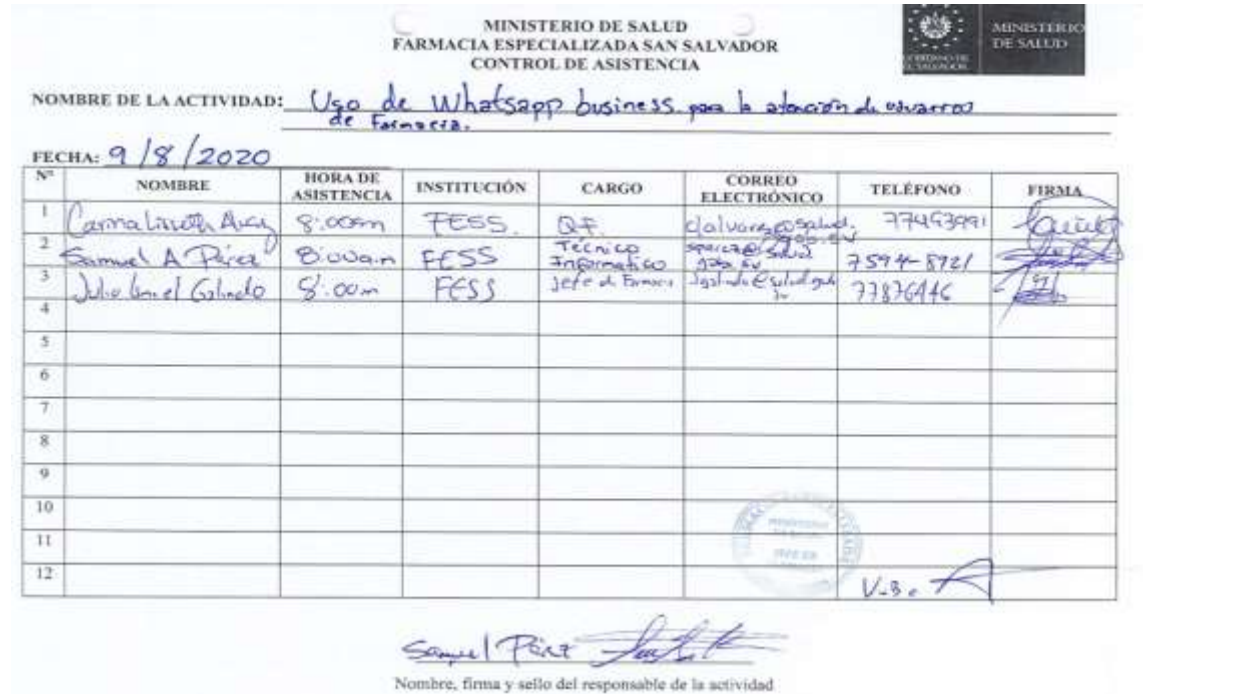 MINISTERIO DE SALUD
FARMACIA ESPECIALIZADA SAN SALVADOR
CONTROL DE ASISTENCIA
GOBIERNO DE EL SALVADOR
MINISTERIO DE SALUD
NOMBRE DE LA ACTIVIDAD: Uso de Whatsapp business para la atención de usuarios
de Farmacia.
FECHA: 9/8/2020
N° NOMBRE HORA DE ASISTENCIA INSTITUCIÓN CARGO CORREO ELECTRÓNICO TELÉFONO FIRMA
1 8:00am FESS. Q.F.
2 Samuel A Pérez 8:00am FESS Técnico Informatico 7594-8721
3 Julio Galindo 8:00m FESS Jefe de Farmacia 77876446
4
5
6
7
8
9
10
11
12
V.B.
Samuel Pérez
Nombre, firma y sello del responsable de la actividad